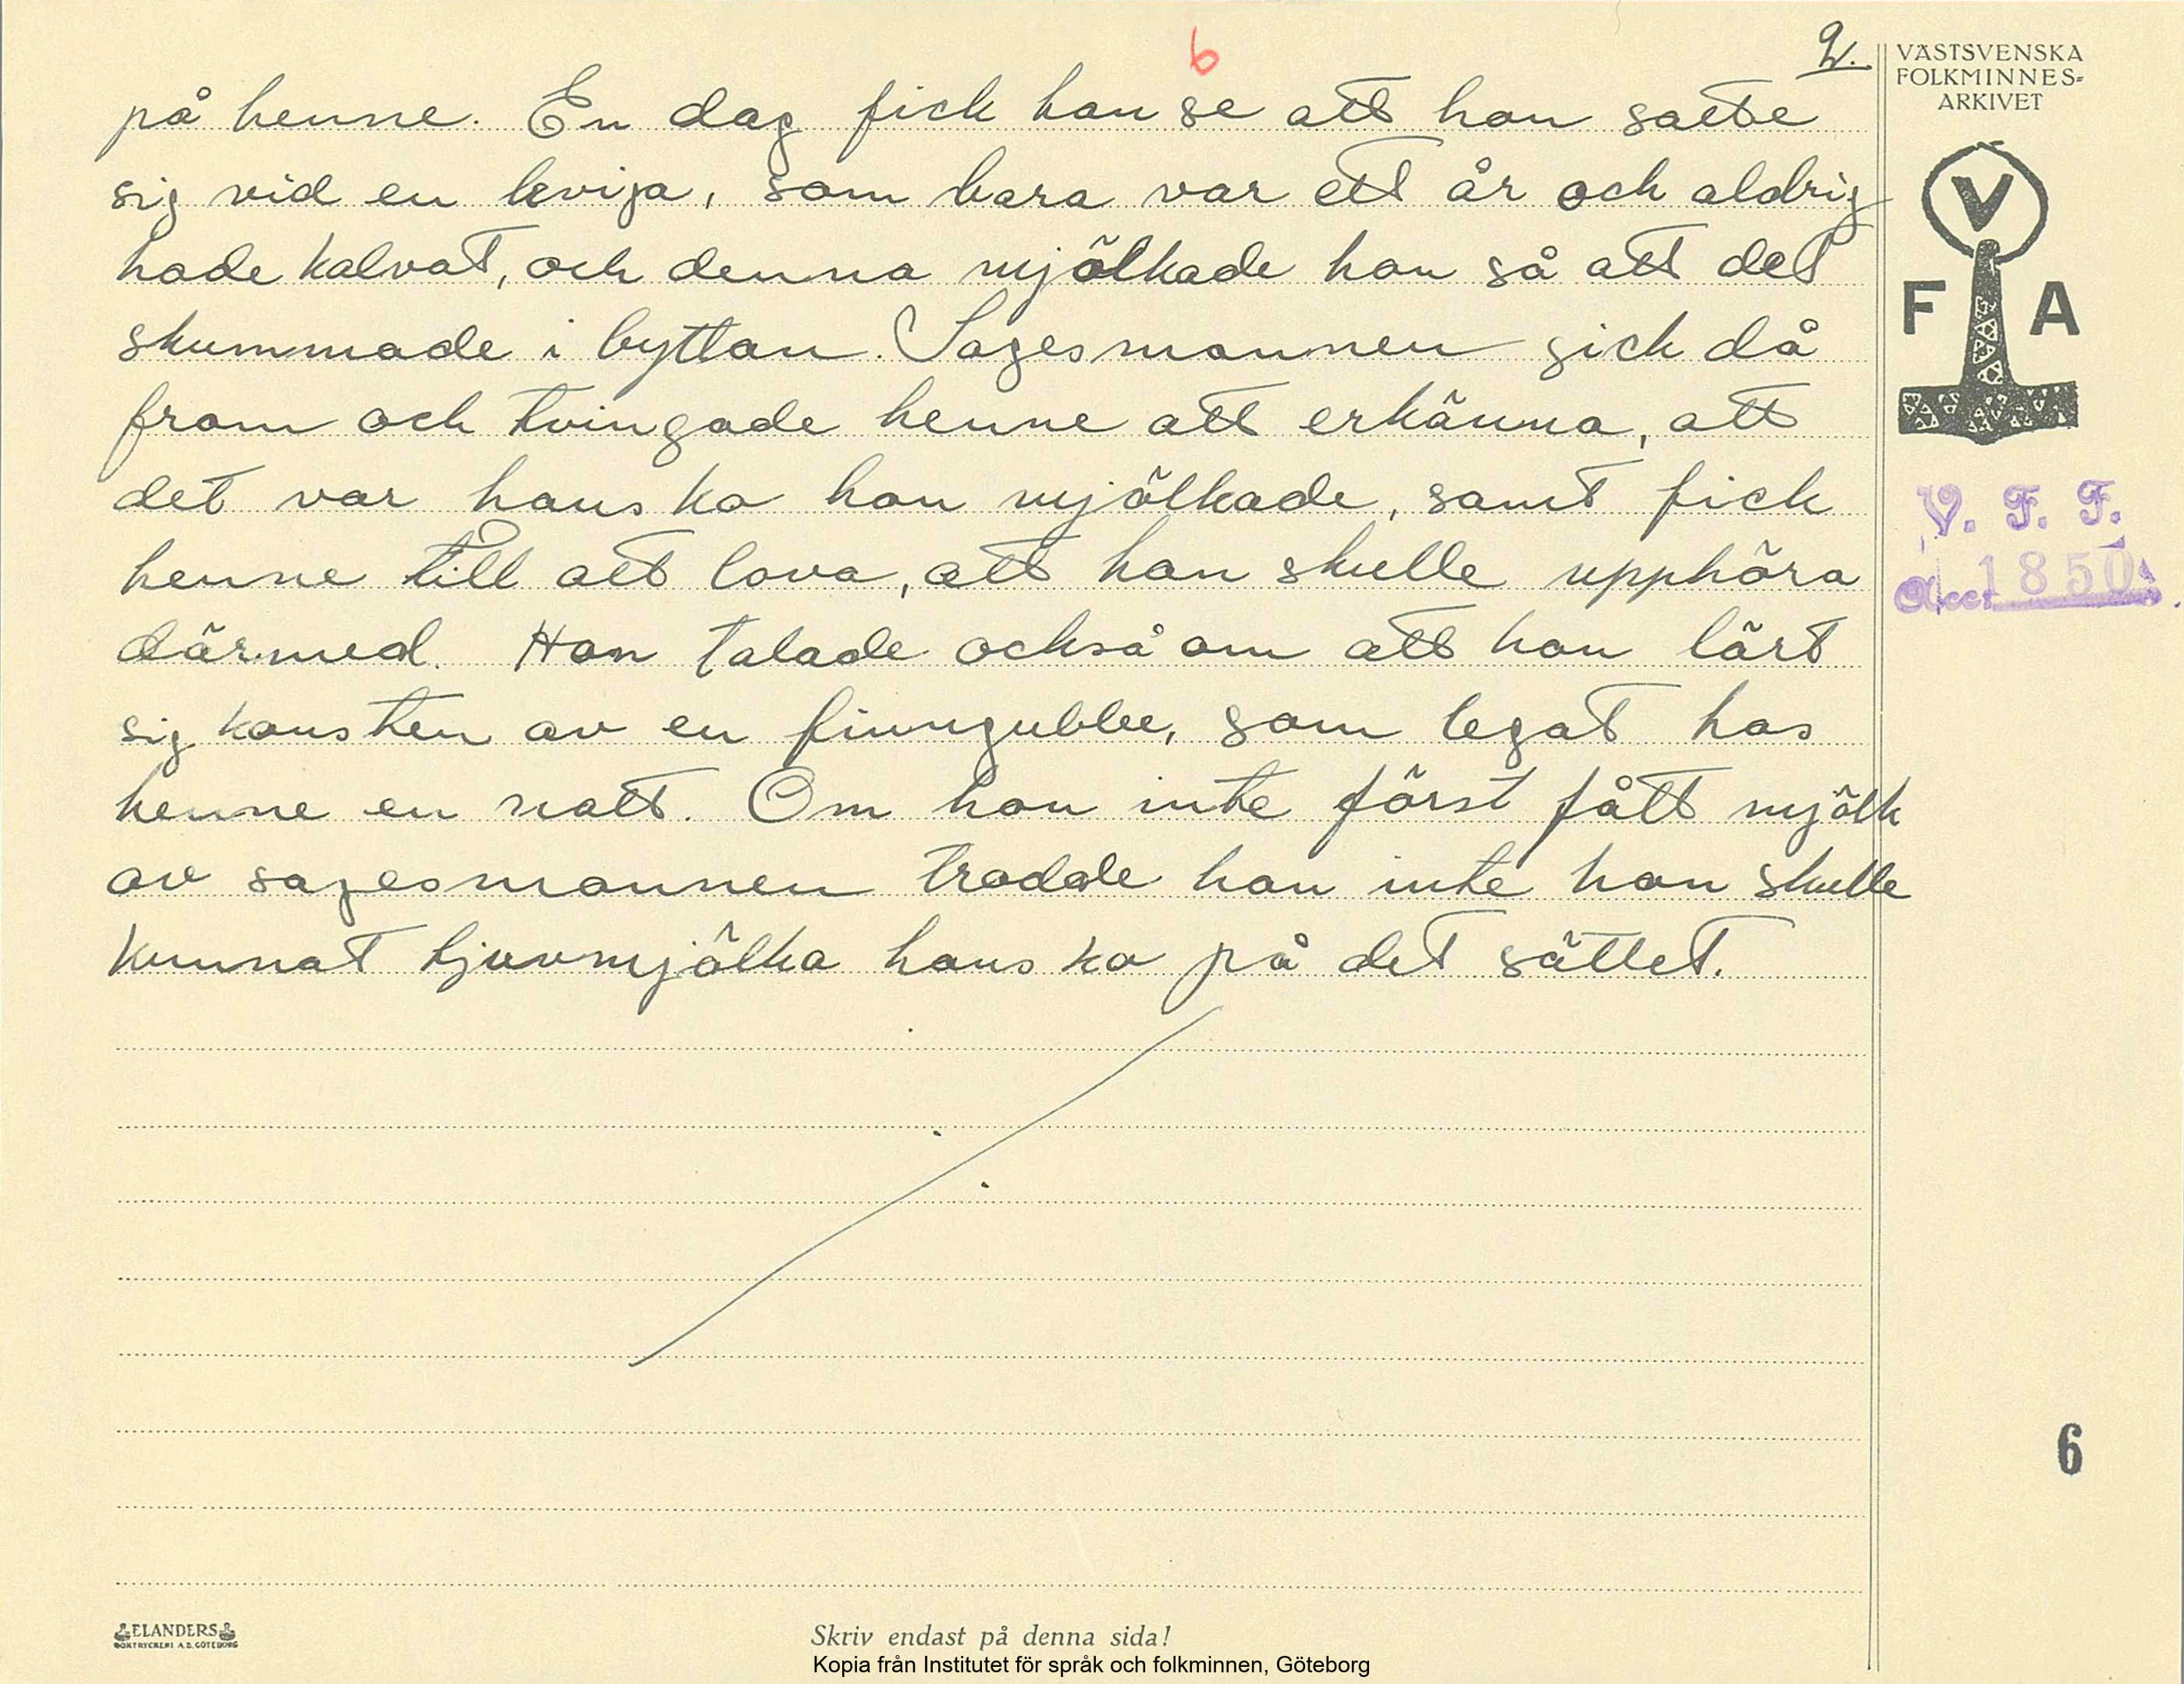 6
2.
på henne. En dag fick han se att hon satte
sig vid en kviga, som bara var ett år och aldrig
hade kalvat, och denna mjölkade hon så att det
skummade i byttan. Sagesmannen gick då
fram och tvingade henne att erkänna, att
det var hans ko hon mjölkade, samt fick
henne till att lova, att hon skulle upphöra
därmed. Hon talade också om att hon lärt
sig konsten av en finngubbe, som legat hos
henne en natt. Om hon inte först fått mjölk
av sagesmannen trodde han inte hon skulle
kunnat tjuvmjölka hans ko på det sättet.
VÄSTSVENSKA
FOLKMINNES-
ARKIVET
V
F A
V. F. F.
Acc. 1850
6
ELANDERS
BOKTRYCKERI A.B. GÖTEBORG
Skriv endast på denna sida!
Kopia från Institutet för språk och folkminnen, Göteborg